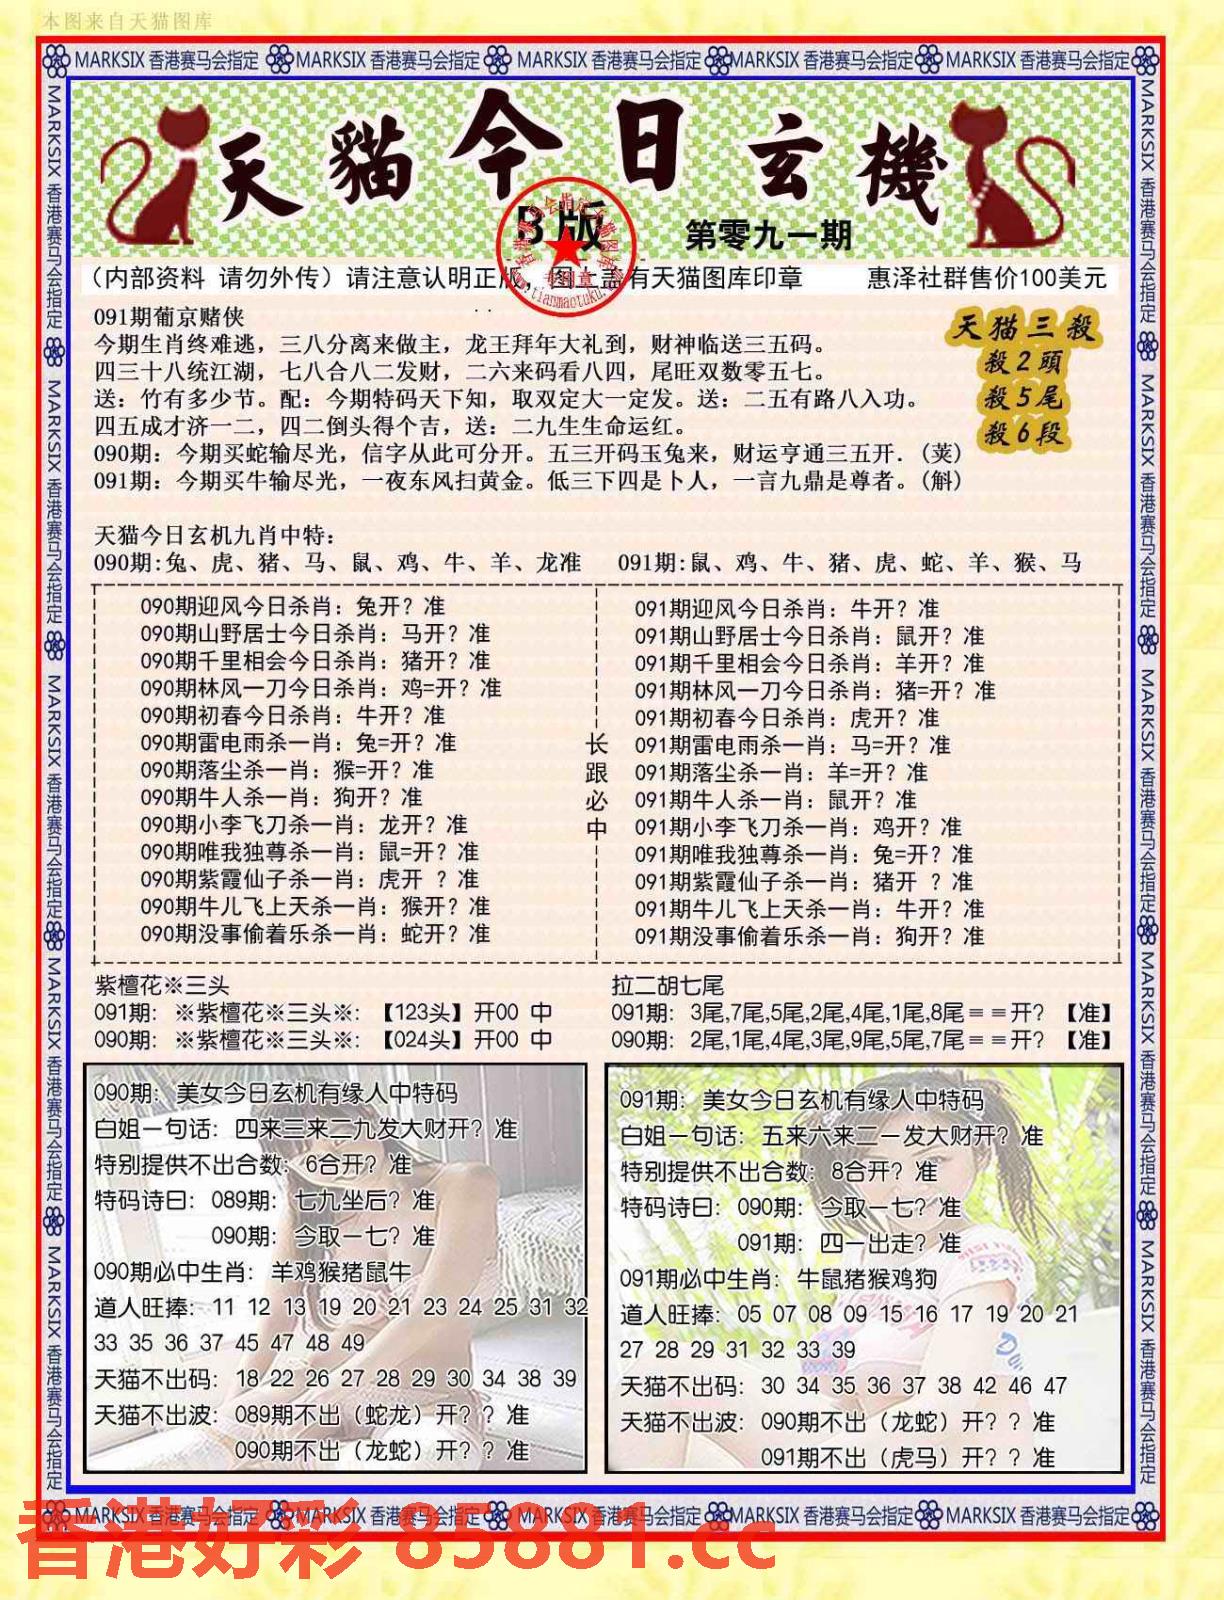 本图来自天猫图库
MARKSIX 香港赛马会指定 MARKSIX 香港赛马会指定 MARKSIX 香港赛马会指定 MARKSIX 香港赛马会指定 MARKSIX 香港赛马会指定
天貓今日玄機
B版
第零九一期
(内部资料 请勿外传)请注意认明正版，图上盖有天猫图库印章 惠泽社群售价100美元
091期葡京赌侠
今期生肖终难逃，三八分离来做主，龙王拜年大礼到，财神临送三五码。
四三十八统江湖，七八合八二发财，二六来码看八四，尾旺双数零五七。
送：竹有多少节。配：今期特码天下知，取双定大一定发。送：二五有路八入功。
四五成才济一二，四二倒头得个吉，送：二九生生命运红。
090期：今期买蛇输尽光，信字从此可分开。五三开码玉兔来，财运亨通三五开.（荚）
091期：今期买牛输尽光，一夜东风扫黄金。低三下四是卜人，一言九鼎是尊者。（斛）
天猫三殺
殺2頭
殺5尾
殺6段
天猫今日玄机九肖中特：
090期:兔、虎、猪、马、鼠、鸡、牛、羊、龙准 091期:鼠、鸡、牛、猪、虎、蛇、羊、猴、马
090期迎风今日杀肖：兔开？准
090期山野居士今日杀肖：马开？准
090期千里相会今日杀肖：猪开？准
090期林风一刀今日杀肖：鸡=开？准
090期初春今日杀肖：牛开？准
090期雷电雨杀一肖：兔=开？准
090期落尘杀一肖：猴=开？准
090期牛人杀一肖：狗开？准
090期小李飞刀杀一肖：龙开？准
090期唯我独尊杀一肖：鼠=开？准
090期紫霞仙子杀一肖：虎开 ？准
090期牛儿飞上天杀一肖：猴开？准
090期没事偷着乐杀一肖：蛇开？准
长跟必中
091期迎风今日杀肖：牛开？准
091期山野居士今日杀肖：鼠开？准
091期千里相会今日杀肖：羊开？准
091期林风一刀今日杀肖：猪=开？准
091期初春今日杀肖：虎开？准
091期雷电雨杀一肖：马=开？准
091期落尘杀一肖：羊=开？准
091期牛人杀一肖：鼠开？准
091期小李飞刀杀一肖：鸡开？准
091期唯我独尊杀一肖：兔=开？准
091期紫霞仙子杀一肖：猪开 ？准
091期牛儿飞上天杀一肖：牛开？准
091期没事偷着乐杀一肖：狗开？准
紫檀花※三头
091期：※紫檀花※三头※：【123头】开00 中
090期：※紫檀花※三头※：【024头】开00 中
拉二胡七尾
091期：3尾,7尾,5尾,2尾,4尾,1尾,8尾＝＝开？【准】
090期：2尾,1尾,4尾,3尾,9尾,5尾,7尾＝＝开？【准】
090期：美女今日玄机有缘人中特码
白姐一句话：四来三来二九发大财开？准
特别提供不出合数：6合开？准
特码诗曰：089期：七九坐后？准
090期：今取一七？准
090期必中生肖：羊鸡猴猪鼠牛
道人旺捧：11 12 13 19 20 21 23 24 25 31 32
33 35 36 37 45 47 48 49
天猫不出码：18 22 26 27 28 29 30 34 38 39
天猫不出波：089期不出（蛇龙）开？？准
090期不出（龙蛇）开？？准
091期：美女今日玄机有缘人中特码
白姐一句话：五来六来二一发大财开？准
特别提供不出合数：8合开？准
特码诗曰：090期：今取一七？准
091期：四一出走？准
091期必中生肖：牛鼠猪猴鸡狗
道人旺捧：05 07 08 09 15 16 17 19 20 21
27 28 29 31 32 33 39
天猫不出码：30 34 35 36 37 38 42 46 47
天猫不出波：090期不出（龙蛇）开？？准
091期不出（虎马）开？？准
MARKSIX 香港赛马会指定 MARKSIX 香港赛马会指定 MARKSIX 香港赛马会指定 MARKSIX 香港赛马会指定 MARKSIX 香港赛马会指定
MARKSIX 香港赛马会指定 MARKSIX 香港赛马会指定 MARKSIX 香港赛马会指定 MARKSIX 香港赛马会指定 MARKSIX 香港赛马会指定
MARKSIX 香港赛马会指定 MARKSIX 香港赛马会指定 MARKSIX 香港赛马会指定 MARKSIX 香港赛马会指定 MARKSIX 香港赛马会指定
香港好彩 85881.cc